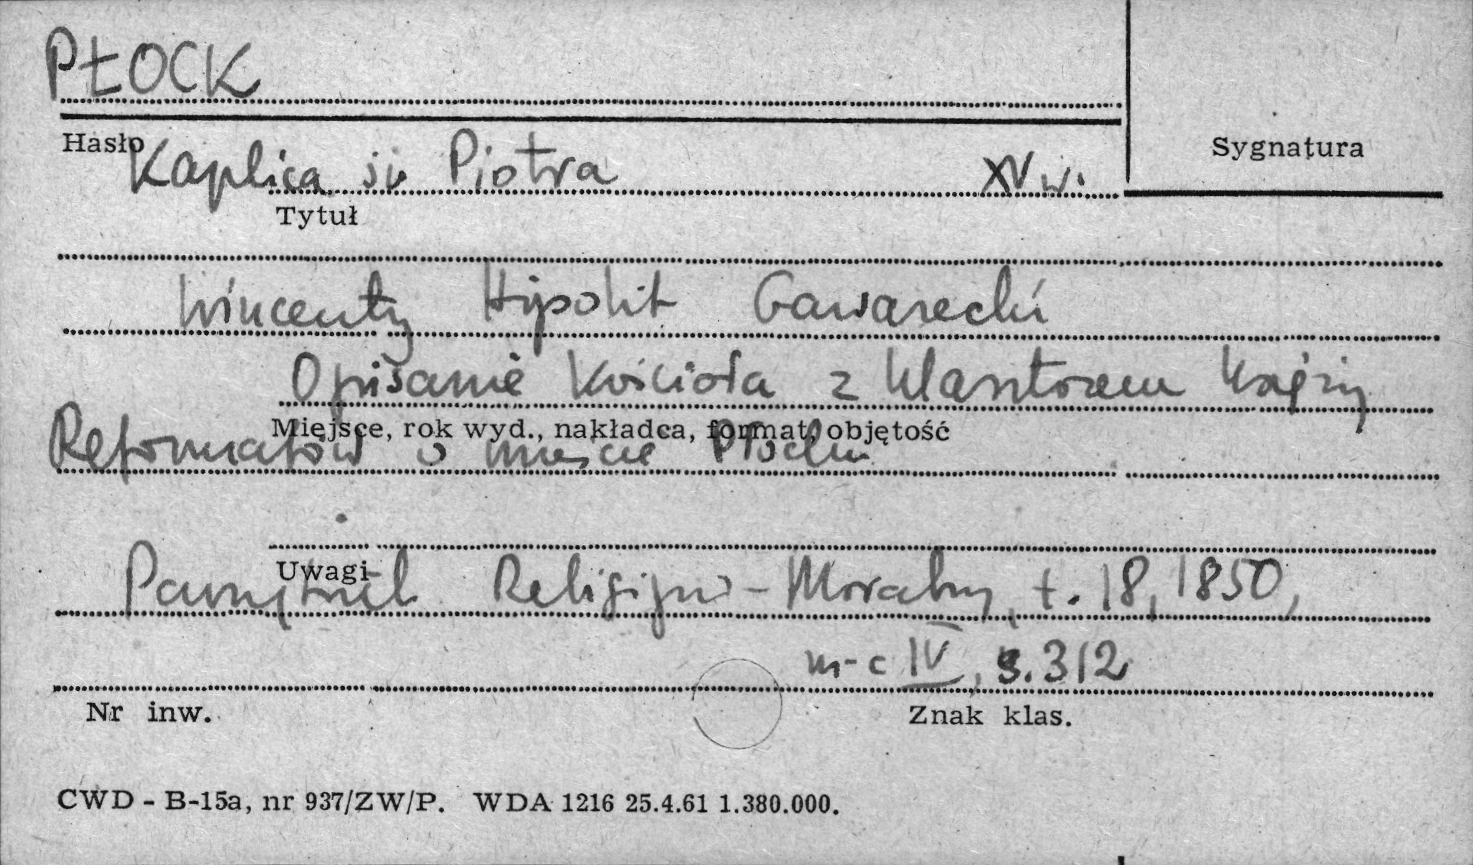 PŁOCK
Hasło
Sygnatura
Kaplica św Piotra XV w.
Tytuł
Wincenty Hipolit Gawarecki
Opisanie kościoła z klasztorem księży
Miejsce, rok wyd., nakładca, format, objętość
Reformatów w mieście Płocku
Uwagi
Pamiętnik Religijno-Moralny, t. 18, 1850,
m-c IV, s. 312
Nr inw.
Znak klas.
CWD - B-15a, nr 937/ZW/P. WDA 1216 25.4.61 1.380.000.